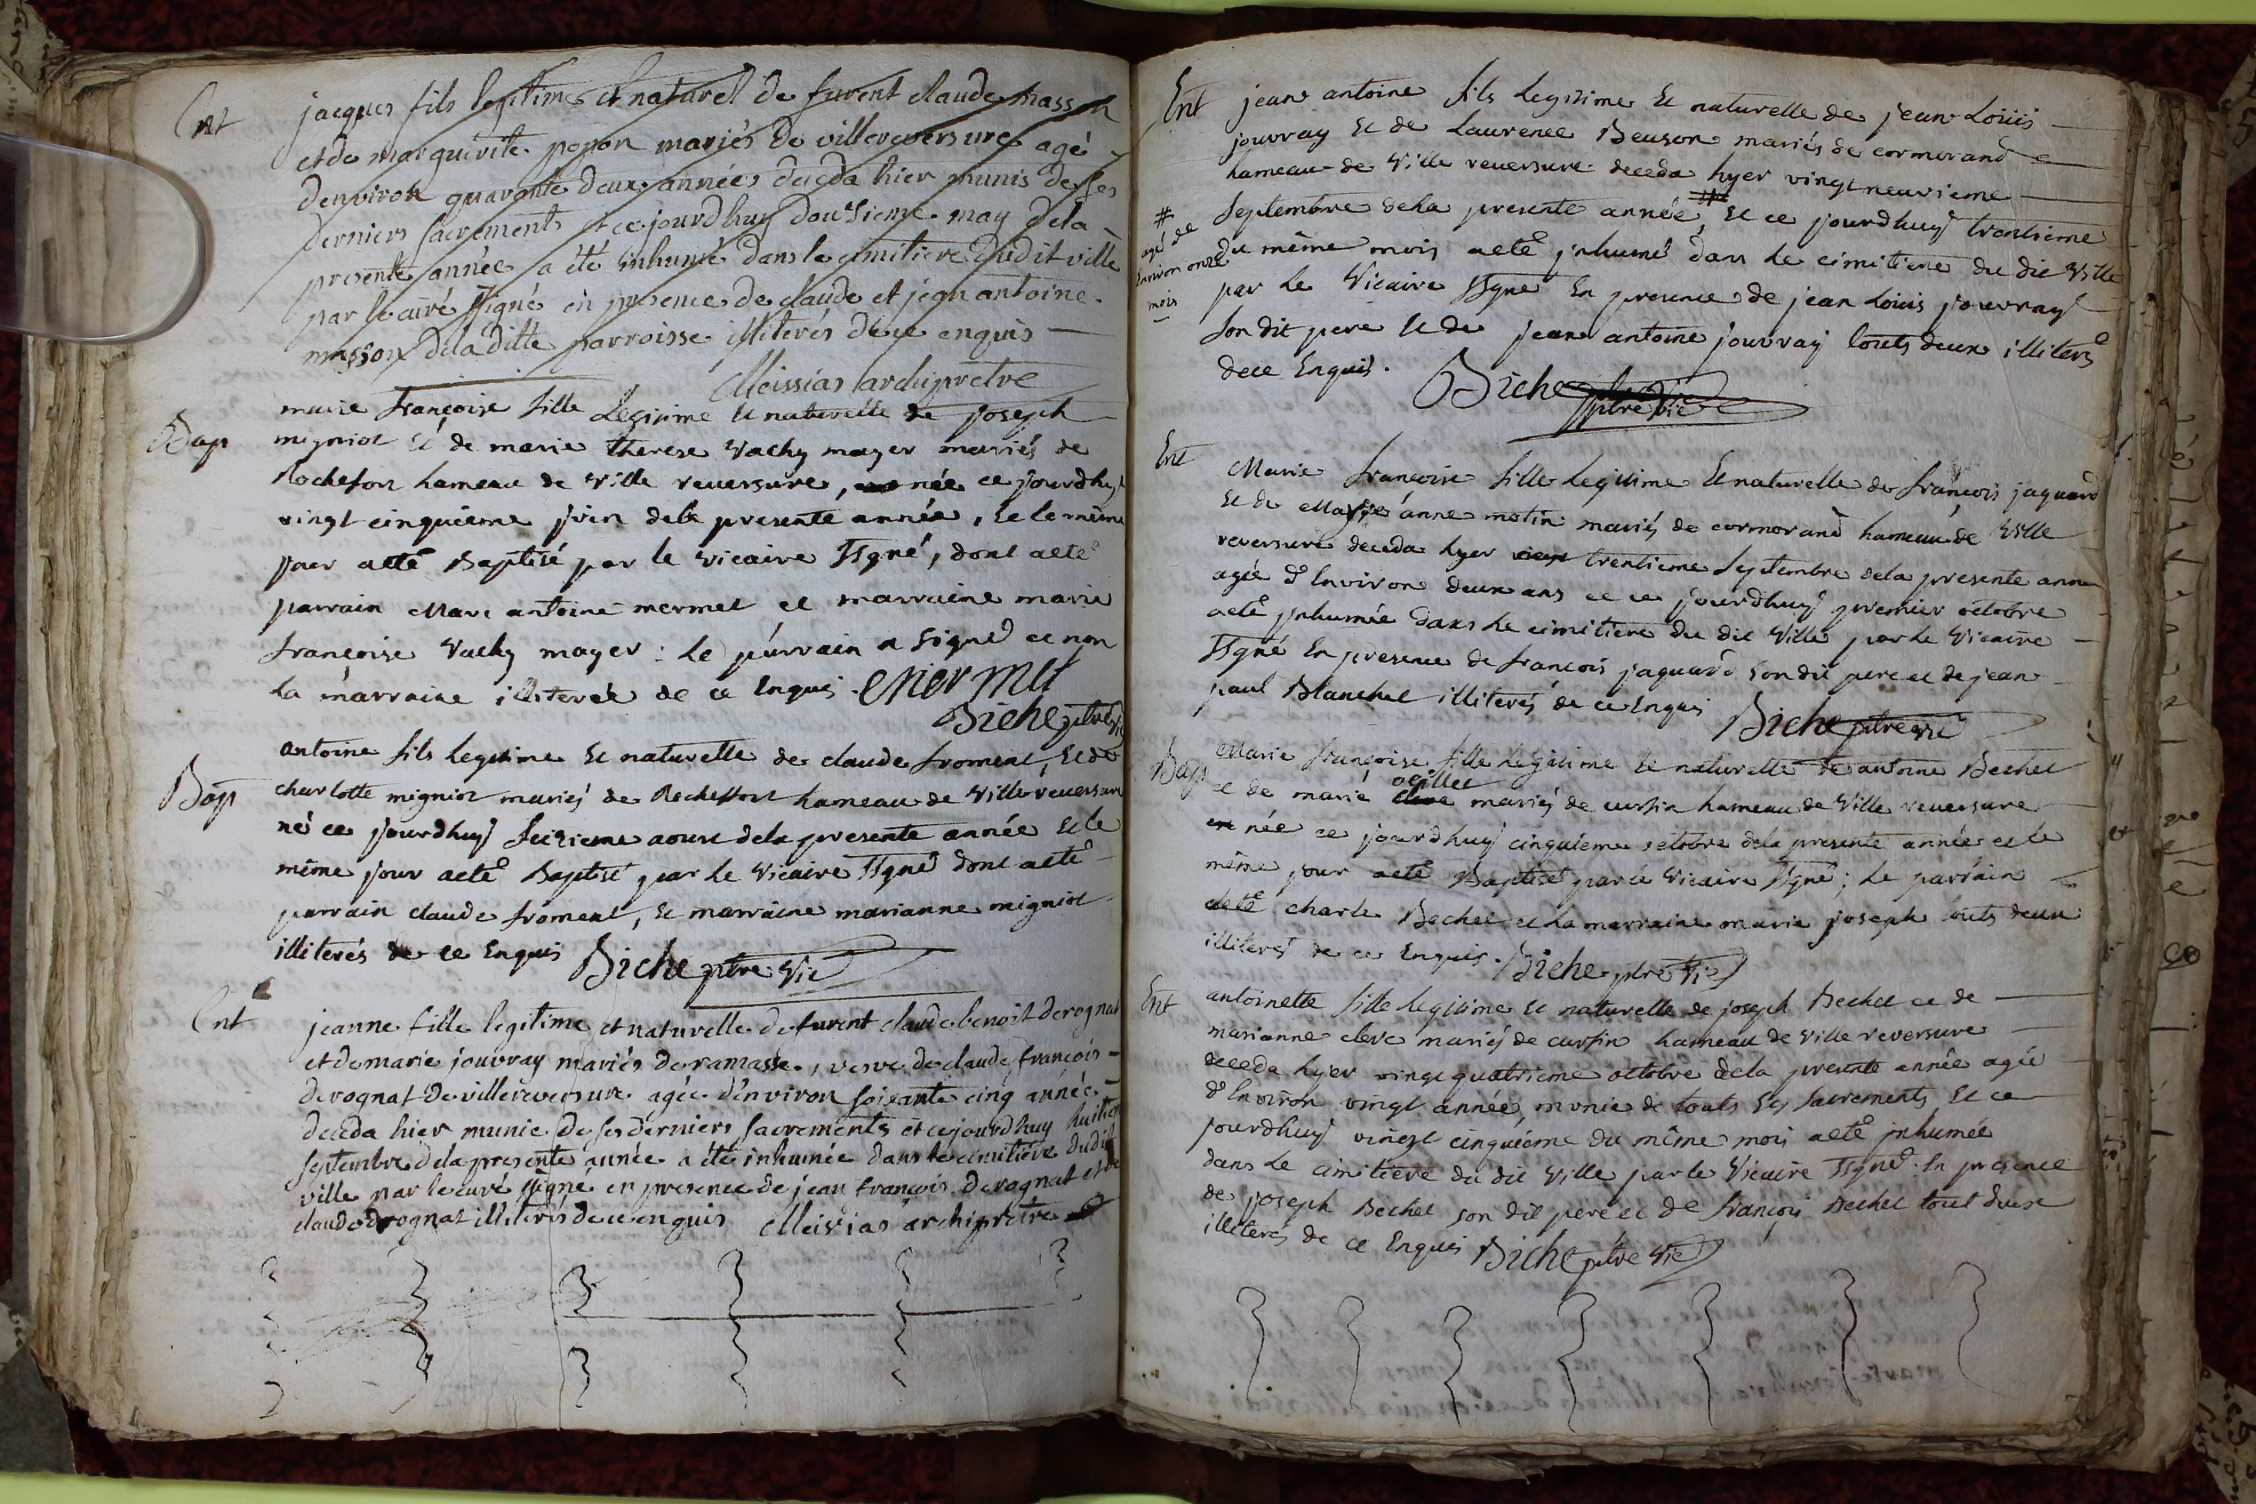 Ent
jacques fils legitime et naturel de furent claude masson
et de marguerite popon mariés de villereversure agé
denviron quarante deux années deceda hier munis de ses
derniers sacrements et ce jourdhuy douzieme may dela
presente année a été inhumé dans le cimitiere dudit ville
par le curé ssigné en presence de claude et jean antoine
masson dela ditte parroisse illiterés de ce enquis
Meissias archipretre
Bap
marie françoise fille Legitime et naturelle de joseph
migniot et de marie therese Vachy mayer mariés de
Rochefort hameau de Ville reversure, née ce jourdhuy
vingt cinquieme juin dela presente année, et le même
jour aetté Baptisé par le vicaire ssigné, dont aeté
parrain Marc antoine mermet et marraine marie
françoise Vachy mayer : Le parrain a signé et non
La marraine illiterée de ce Enquis Mermet
Biche ptre vic
Bap
antoine fils Legitime et naturelle de claude froment, et de
charlotte migniot mariés de Rocheffort hameau de Ville reversure
né ce jourdhuy seizieme aoust dela presente année et le
même jour aeté Baptisé par le Vicaire ssigné dont aeté
parrain claude froment, et marraine marianne migniot
illiterés de ce Enquis Biche ptre Vic
Ent
jeanne fille legitime et naturelle de furent claude benoit derognat
et de marie jouvray mariés de ramasse, veuve de claude françois
derognat de villereversure agée d'environ soixante cinq année
deceda hier munie de ses derniers sacrements et ce jourdhuy huitieme
septembre dela presente année a été inhumée dans le cimitiere dudit
ville par le curé ssigné en presence de jean françois derognat et de
claude derognat illiterés de ce enquis Meissias archipretre
Ent
jean antoine fils Legitime et naturelle de jean Louis
jouvray et de Laurence Beuson mariés de cormorand
hameau de Ville reversure deceda hyer vingt neuvieme
septembre dela presente année, # et ce jourdhuy trentieme
# agé de Environ onze mois
du même mois aeté jnhumé dans Le cimitiere du dit Ville
par Le Vicaire ssigné En presence de jean Louis jouvray
son dit pere et de jean antoine jouvray touts deux illiterés
de ce Enquis. Biche ptre vic
Ent
Marie françoise fille Legitime et naturelle de françois jaquard
et de Marie anne motin mariés de cormorand hameau de Ville
reversure deceda hyer trentieme septembre dela presente anne
agée d'Environ deux ans et ce jourdhuy premier octobre
aeté jnhumée dans Le cimitiere du dit Ville par Le Vicaire
ssigné En presence de françois jaquard son dit pere et de jean
paul Blanchet illiterés de ce Enquis Biche ptre vic
Bap
Marie françoise fille Legitime et naturelle de antoine Bechet
et de marie mariés de cursin hameau de Ville reversure
née ce jourdhuy cinquieme octobre dela presente année et le
même jour aeté Baptisé par le Vicaire ssigné; Le parrain
aeté charle Bechet et La marraine marie joseph touts deux
illiterés de ce Enquis. Biche ptre vic
Ent
antoinette fille Legitime et naturelle de joseph Bechet et de
marianne cleve mariés de cursin hameau de Ville reversure
deceda hyer vingt quatrieme octobre dela presente année agée
d'Environ vingt année, munie de touts ses sacrements et ce
jourdhuy vingt cinquieme du même mois aeté jnhumée
dans Le cimitiere du dit Ville par le Vicaire ssigné. En presence
de joseph Bechet son dit pere et de françois Bechet tout deux
illiterés de ce Enquis Biche ptre vic